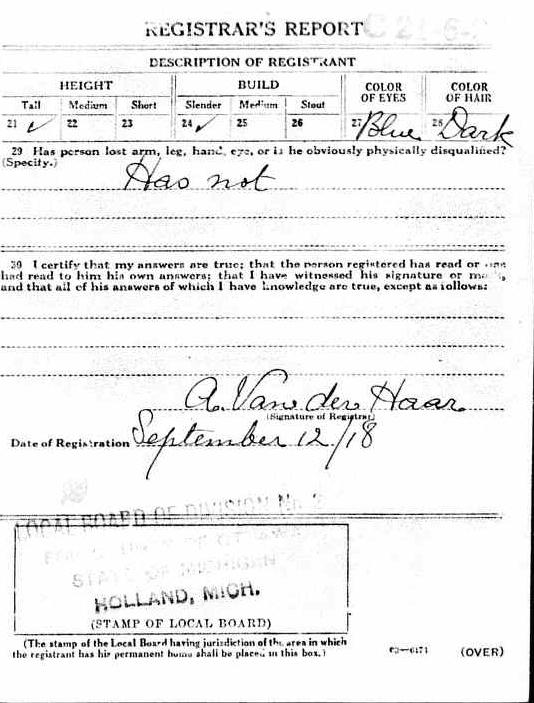 REGISTRAR'S REPORT
DESCRIPTION OF REGISTRANT
HEIGHT BUILD COLOR OF EYES COLOR OF HAIR
Tall Medium Short Slender Medium Stout
21 ✓ 22 23 24 ✓ 25 26 27 Blue 28 Dark
29 Has person lost arm, leg, hand, eye, or is he obviously physically disqualified?
(Specify.)
Has not
30 I certify that my answers are true; that the person registered has read or
had read to him his own answers; that I have witnessed his signature or mark,
and that all of his answers of which I have knowledge are true, except as follows:
A. Van der Haar
(Signature of Registrar)
Date of Registration September 12/18
LOCAL BOARD OF DIVISION No. 2
STATE OF MICHIGAN
HOLLAND, MICH.
(STAMP OF LOCAL BOARD)
(The stamp of the Local Board having jurisdiction of the area in which
the registrant has his permanent home shall be placed in this box.)
03—6171 (OVER)